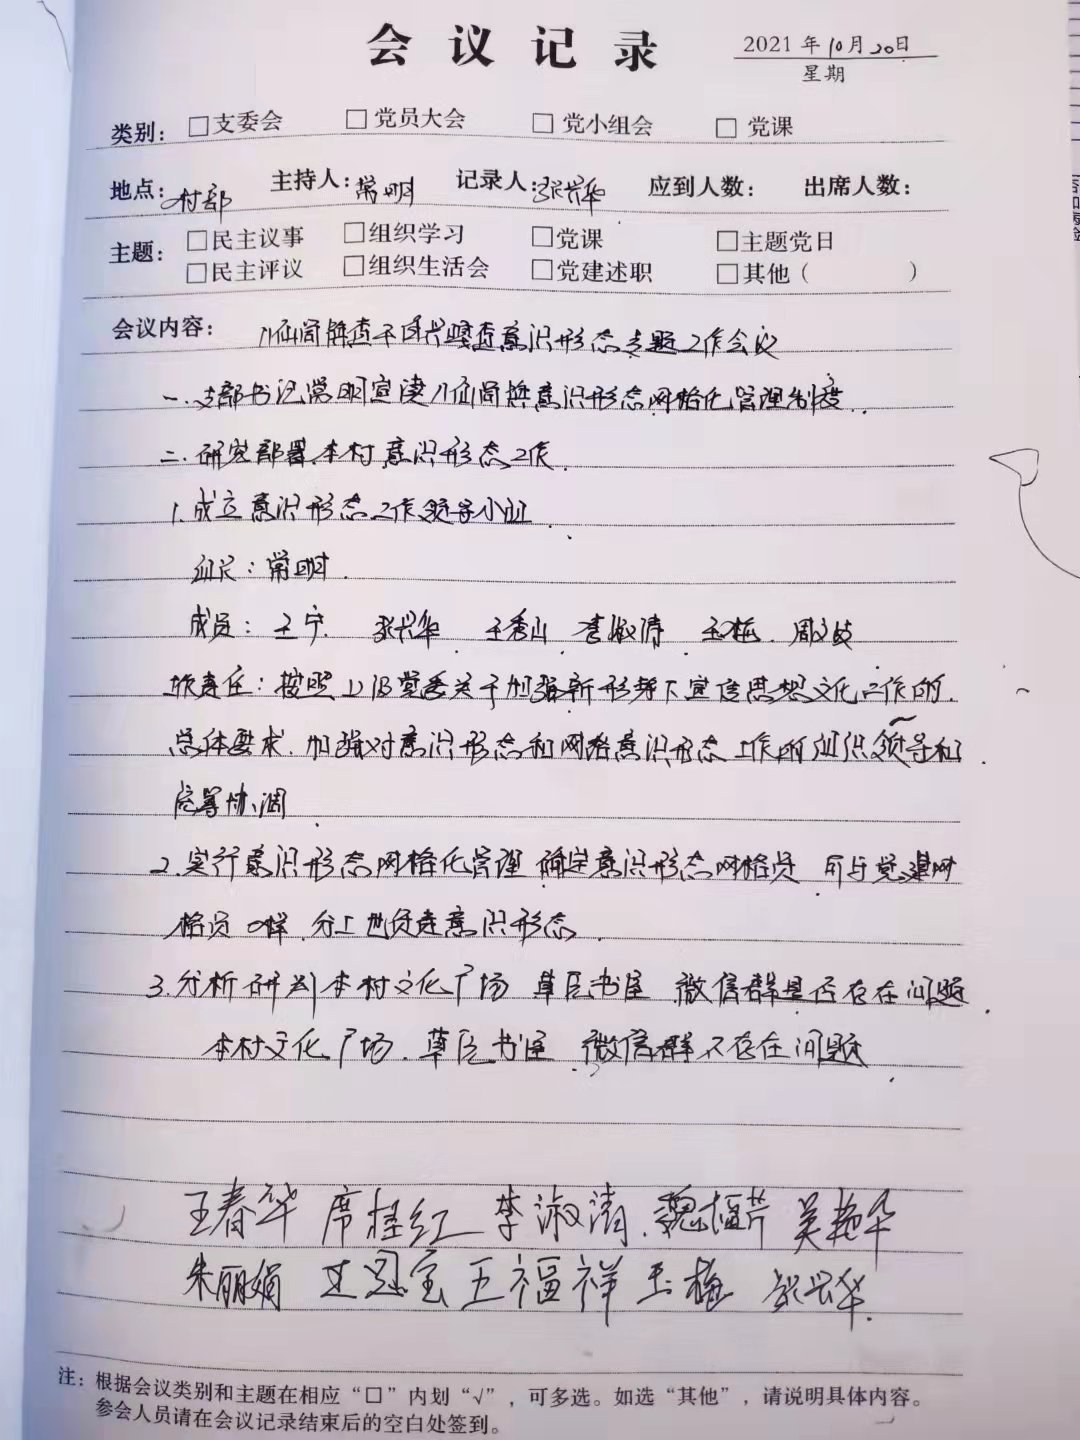 会议记录
2021年10月20日
星期
类别：□支委会 □党员大会 □党小组会 □党课
地点：村部 主持人：常明 记录人：张兴华 应到人数： 出席人数：
主题：□民主议事 □组织学习 □党课 □主题党日
□民主评议 □组织生活会 □党建述职 □其他（ ）
会议内容：八仙筒镇 意识形态专题工作会议
一.支部书记常明宣读八仙筒镇意识形态网格化管理制度.
二.研究部署本村意识形态工作.
1.成立意识形态工作领导小组.
组长：常明.
成员：王宁. 张兴华 王秀山 李淑清 王梅. 周
责任：按照上级党委关于加强新形势下宣传思想文化工作的.
总体要求.加强对意识形态和网络意识形态工作的组织领导和.
统筹协调.
2.实行意识形态网格化管理 确定意识形态网格员 可与党建网
格员一样.分工 负责意识形态.
3.分析研判本村文化广场 草民书屋 微信群是否存在问题.
本村文化广场.草民书屋.微信群不存在问题.
王春华 席桂红 李淑清 魏福芹 吴艳华
朱丽娟 王福祥 王梅 张兴华.
注：根据会议类别和主题在相应“□”内划“√”，可多选。如选“其他”，请说明具体内容。
参会人员请在会议记录结束后的空白处签到。